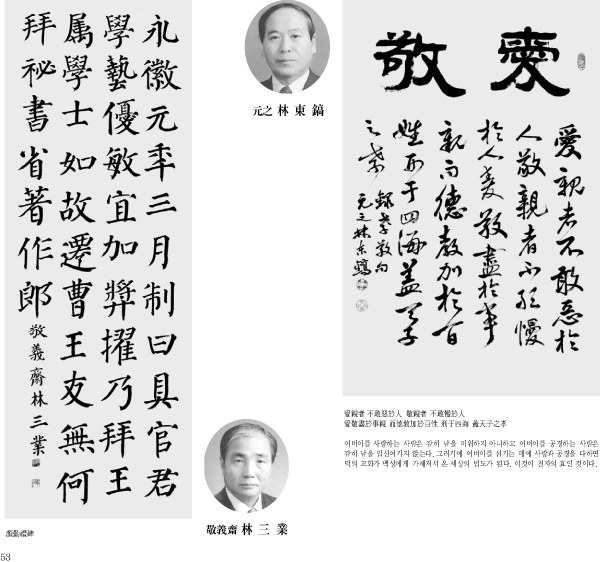 永徽元年三月制曰具官君
學藝優敏宜加奬擢乃拜王
属學士如故遷曹王友無何
拜祕書省著作郎
敬義齋林三業
顔勤禮碑
元之 林東鎬
敬義齋 林三業
愛敬
愛親者不敢惡於
人敬親者不敢慢
於人愛敬盡於事
親而德敎加於百
姓刑于四海盖天子
之孝
元之林東鎬
愛親者 不敢惡於人 敬親者 不敢慢於人
愛敬盡於事親 而德敎加於百姓 刑于四海 蓋天子之孝
어버이를 사랑하는 사람은 감히 남을 미워하지 아니하고 어버이를 공경하는 사람은
감히 남을 업신여기지 않는다. 그러기에 어버이를 섬기는 데에 사랑과 공경을 다하면
덕의 교화가 백성에게 가해져서 온 세상의 법도가 된다. 이것이 천자의 효인 것이다.
53